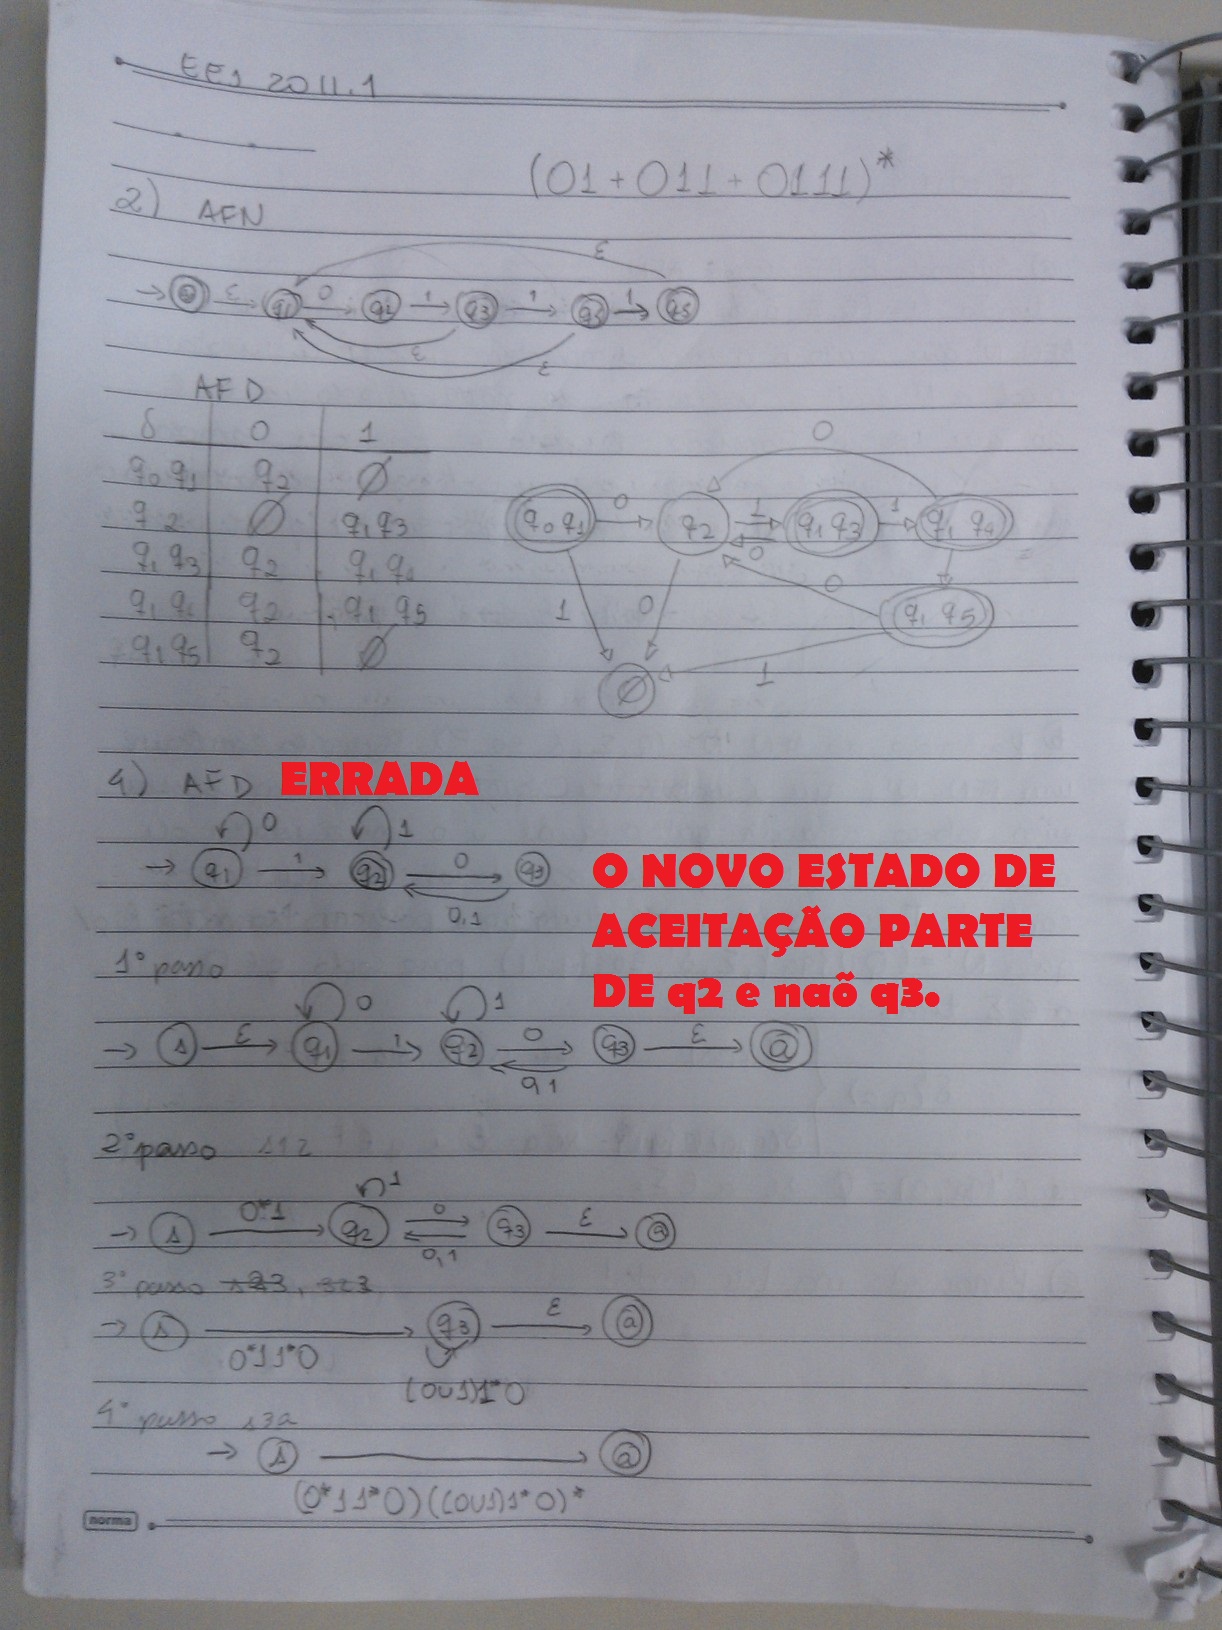 EE1 2011.1
(01 + 011 + 0111)*
2) AFN
ε
→ q0 ε q1 0 q2 1 q3 1 q3 1 q5
ε
ε
AFD
δ 0 1
q0 q1 q2 ∅
q2 ∅ q1 q3
q1 q3 q2 q1 q4
q1 q4 q2 q1 q5
q1 q5 q2 ∅
0
q0 q1 0 q2 1 q1 q3 1 q1 q4
0
0
1 0 q1 q5
∅ 1
4) AFD ERRADA
0 1
→ q1 1 q2 0 q3
0,1
O NOVO ESTADO DE
ACEITAÇÃO PARTE
DE q2 e naõ q3.
1° passo
0 1
→ s ε q1 1 q2 0 q3 ε a
0,1
2° passo s12
1
→ s 0*1 q2 0 q3 ε a
0,1
3° passo s23, 323
→ s q3 ε a
0*11*0
(0∪1)1*0
4° passo s3a
→ s a
(0*11*0)((0∪1)1*0)*
norma